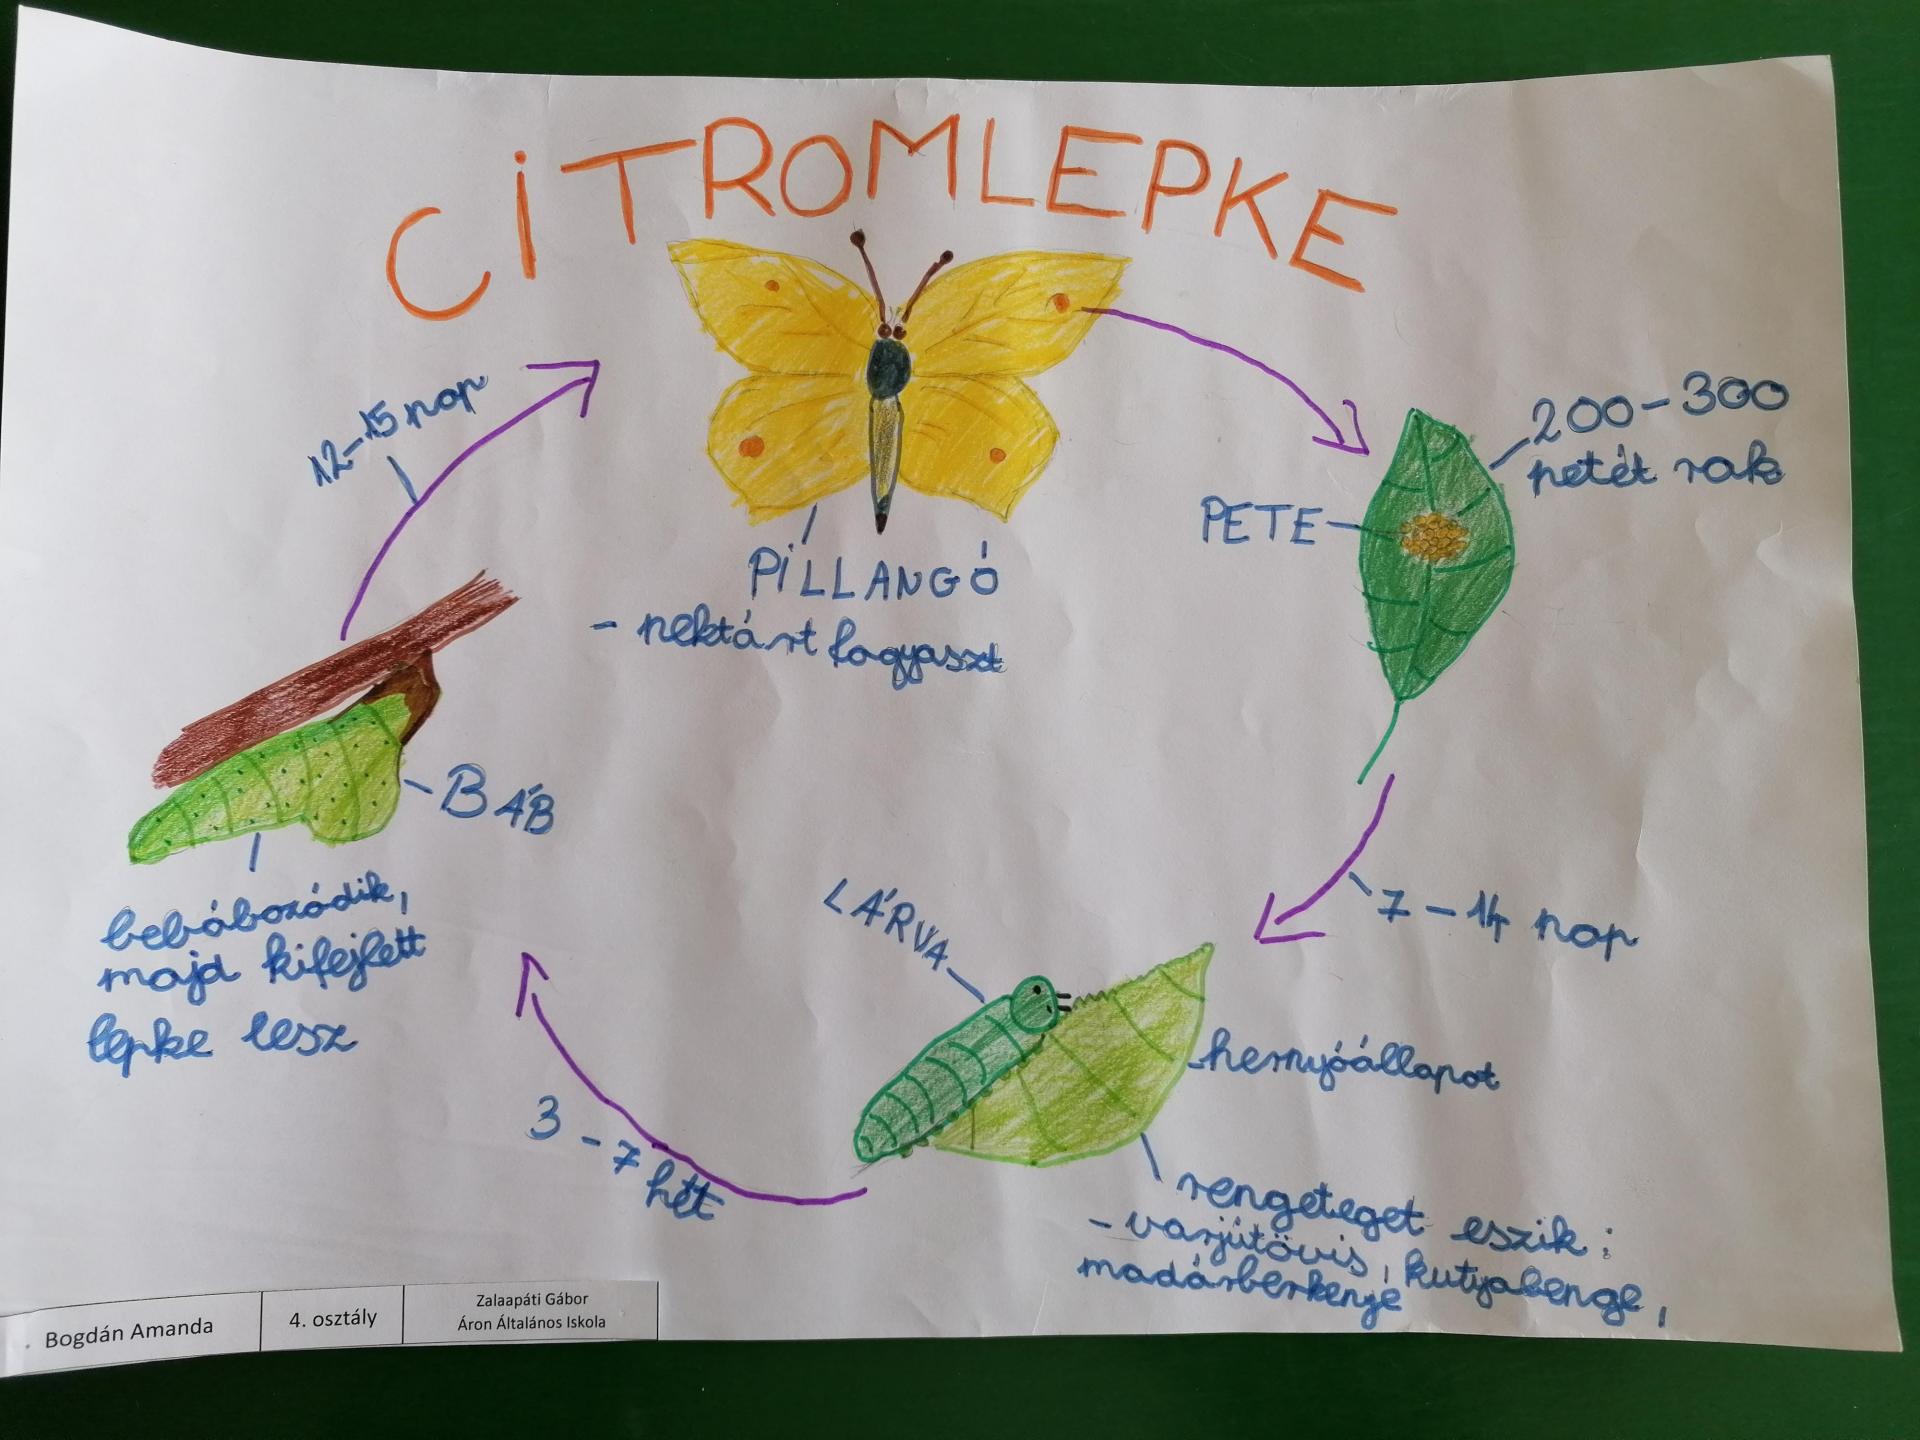 CITROMLEPKE
12-15 nap
200-300
petét rak
PETE
PILLANGÓ
- nektárt fogyaszt
BÁB
bebábozódik,
majd kifejlett
lepke lesz
LÁRVA
7-14 nap
hernyóállapot
3-7 hét
rengeteget eszik:
- varjútövis, kutyabenge,
madárberkenye
Bogdán Amanda
4. osztály
Zalaapáti Gábor
Áron Általános Iskola